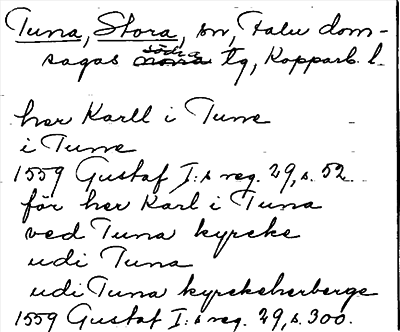 Tuna, Stora, sn, Falu dom-
sagas södra tg, Kopparb. l.
her Karll i Tune
i Tune
1559 Gustaf I:s reg. 29, s. 52.
för her Karl i Tuna
ved Tuna kyrcke
udi Tuna
udi Tuna kyrckeherberge
1559 Gustaf I:s reg. 29, s. 300.